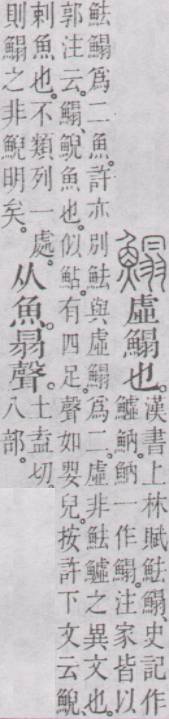 鰨 虛鰨也。
漢書上林賦魼鰨。史記作
鱋魶。魶一作鰨。注家皆以
魼鰨爲二魚。許亦別魼與虛鰨爲二。虛非魼鱋之異文也。
郭注云。鰨、鯢魚也。似鮎。有四足。聲如嬰兒。按許下文云鯢
剌魚也。不類列一處。
則鰨之非鯢明矣。
从魚。𦐇聲。
土盍切。
八部。